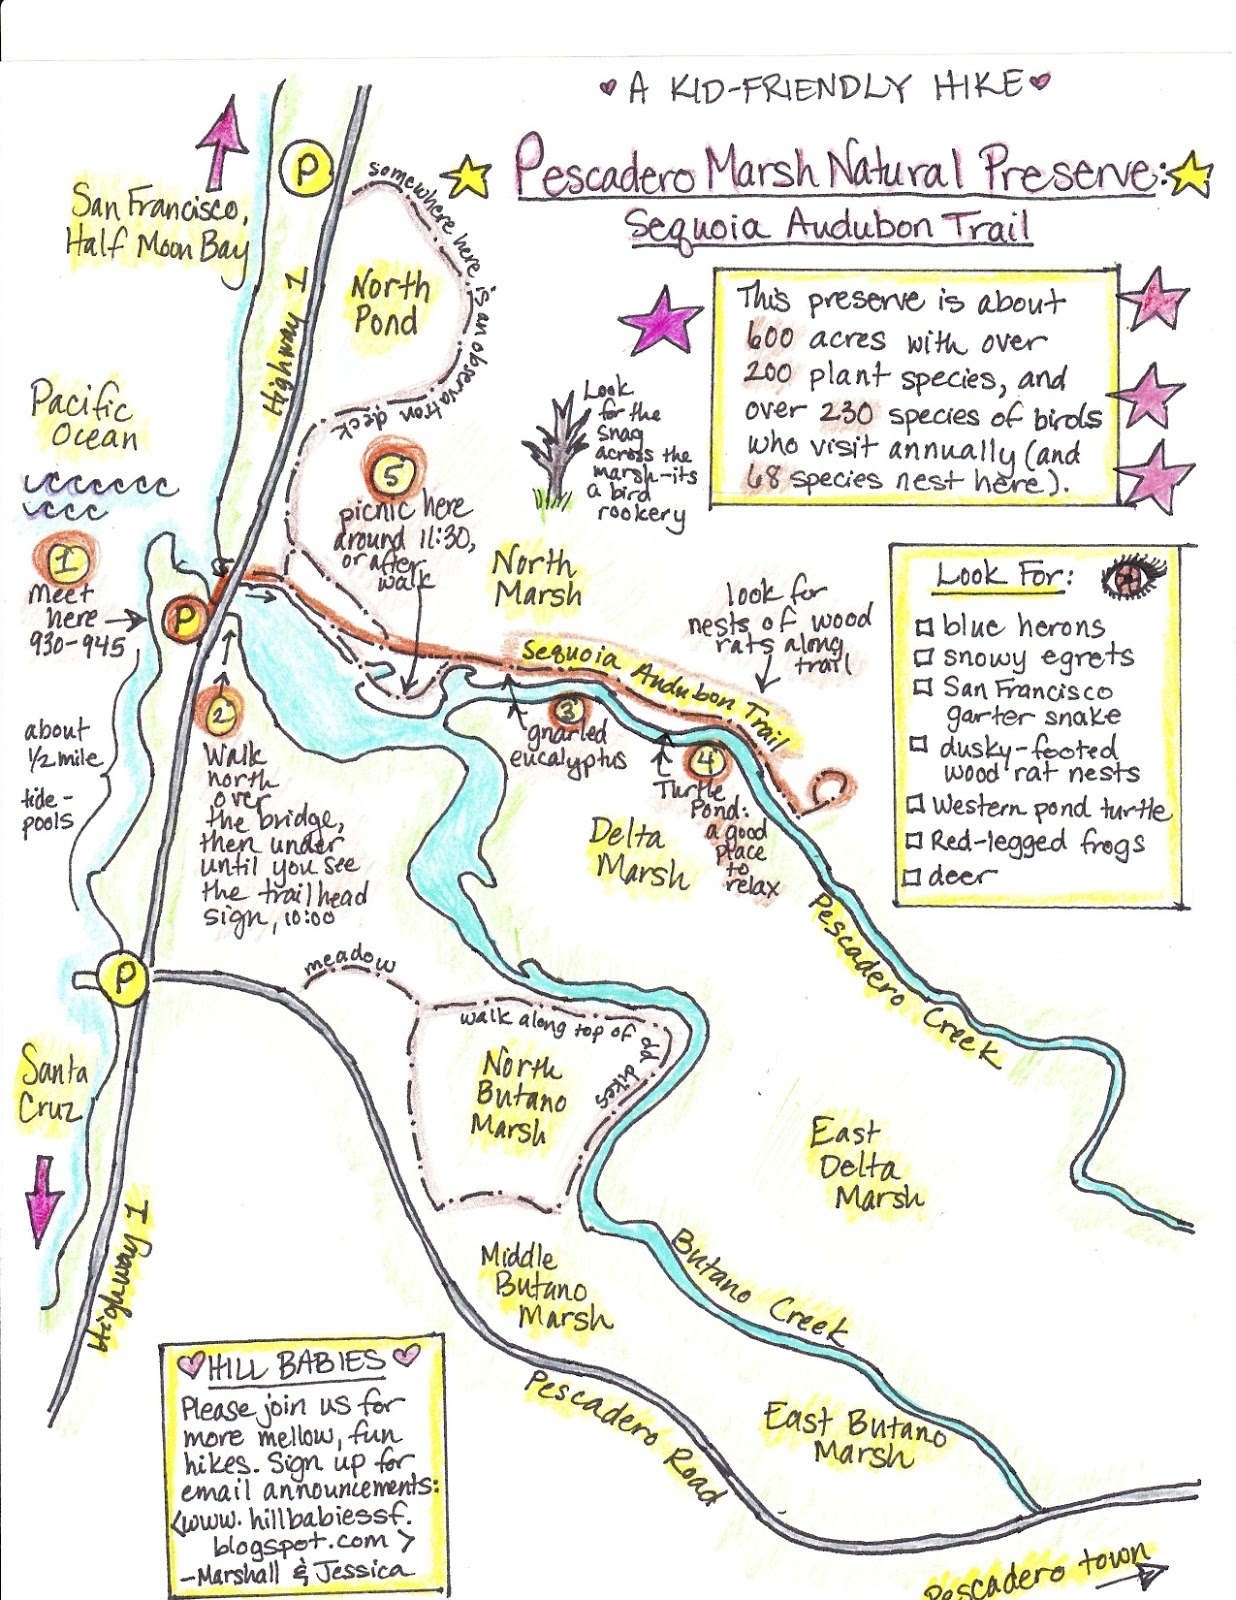 A KID-FRIENDLY HIKE
Pescadero Marsh Natural Preserve:
Sequoia Audubon Trail
This preserve is about
600 acres with over
200 plant species, and
over 230 species of birds
who visit annually (and
68 species nest here).
Look For:
blue herons
snowy egrets
San Francisco
garter snake
dusky-footed
wood rat nests
Western pond turtle
Red-legged frogs
deer
San Francisco,
Half Moon Bay
P
Highway 1
somewhere here is an observation deck
North
Pond
Pacific
Ocean
Look
for the
snag
across the
marsh-its
a bird
rookery
5
picnic here
around 11:30,
or after
walk
North
Marsh
1
meet
here
930-945
P
look for
nests of wood
rats along
trail
Sequoia Audubon Trail
2
Walk
north
over
the bridge,
then under
until you see
the trailhead
sign, 10:00
about
1/2 mile
tide-
pools
3
gnarled
eucalyptus
4
Turtle
Pond:
a good
place
to
relax
Delta
Marsh
Pescadero Creek
P
meadow
walk along top of
old dikes
North
Butano
Marsh
Santa
Cruz
Highway 1
East
Delta
Marsh
Middle
Butano
Marsh
Butano Creek
East Butano
Marsh
Pescadero Road
Pescadero town
HILL BABIES
Please join us for
more mellow, fun
hikes. Sign up for
email announcements:
<www.hillbabiessf.
blogspot.com>
-Marshall & Jessica